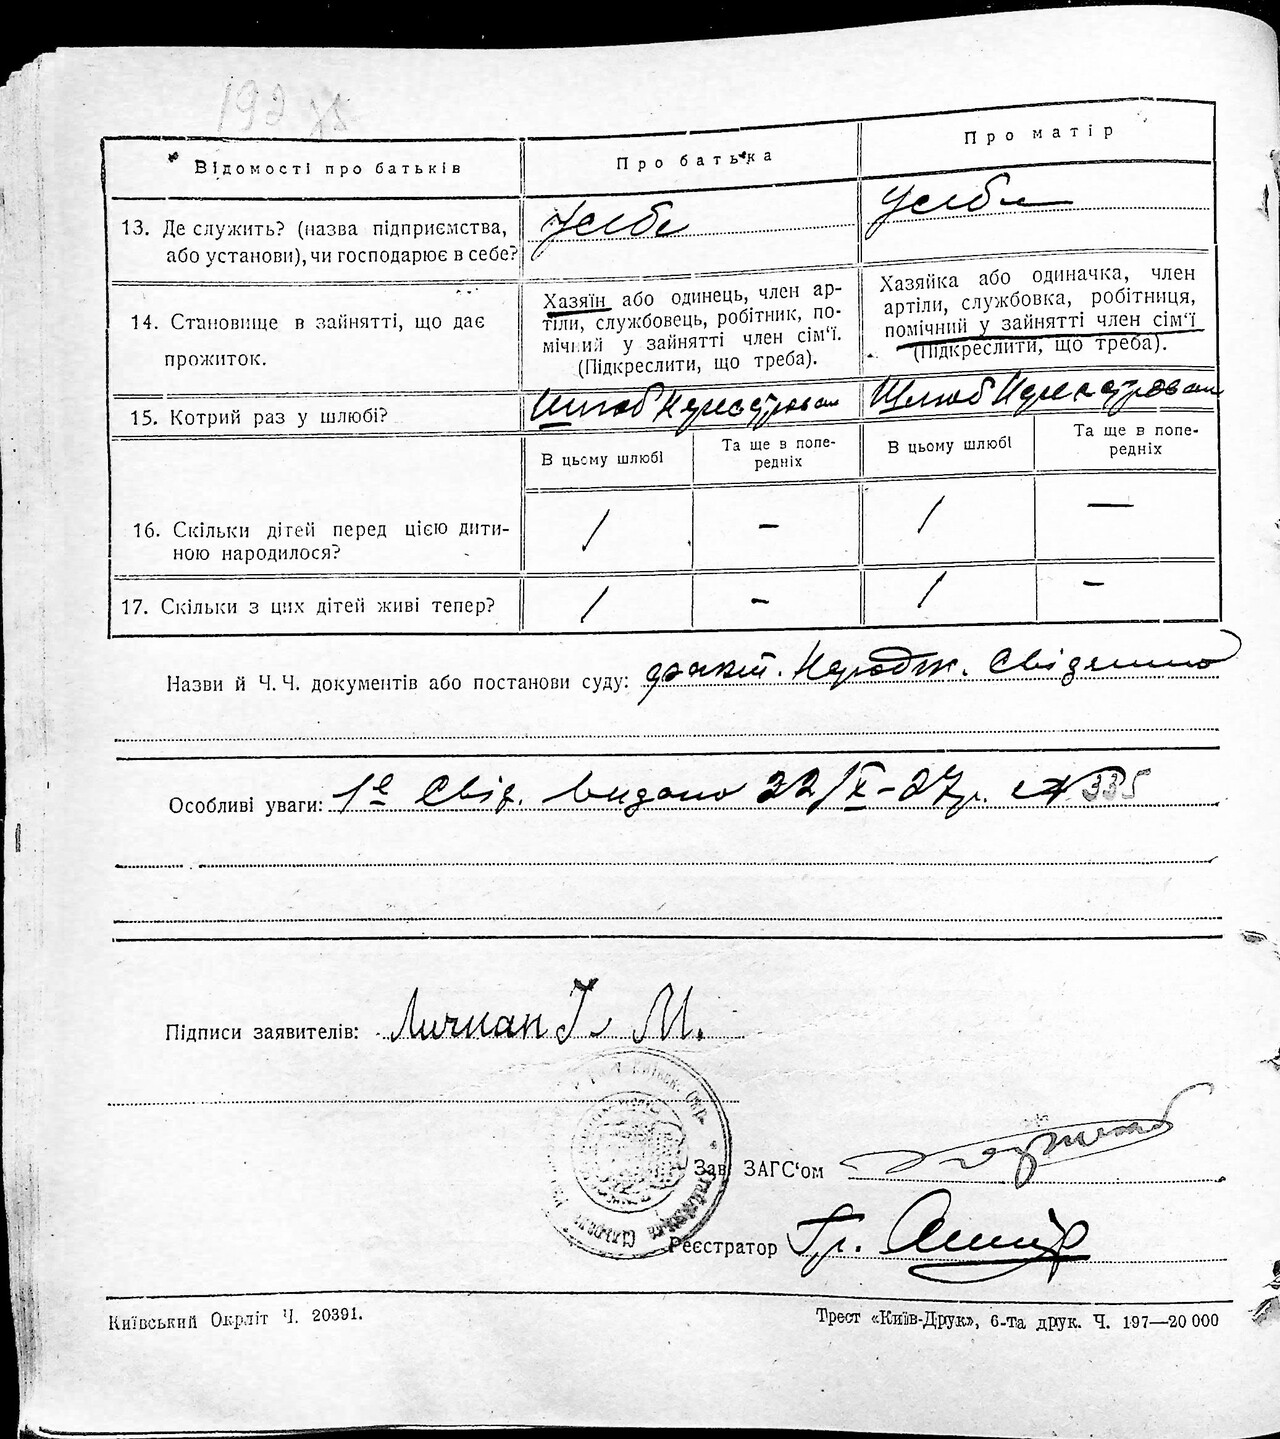 Відомості про батьків
Про батька
Про матір
13. Де служить? (назва підприємства,
або установи), чи господарює в себе?
У себе
У себе
14. Становище в зайнятті, що дає
прожиток.
Хазяїн або одинець, член ар-
тіли, службовець, робітник, по-
мічний у зайнятті член сім'ї.
(Підкреслити, що треба).
Хазяйка або одиначка, член
артіли, службовка, робітниця,
помічний у зайнятті член сім'ї
(Підкреслити, що треба).
15. Котрий раз у шлюбі?
Шлюб
Шлюб
В цьому шлюбі
Та ще в попе-
редніх
В цьому шлюбі
Та ще в попе-
редніх
16. Скільки дітей перед цією дити-
ною народилося?
/ – / —
17. Скільки з цих дітей живі тепер?
/ – / –
Назви й Ч. Ч. документів або постанови суду:
Особливі уваги: 1е Свід. видано 22/X–27р. № 335
Підписи заявителів: Личман І. М.
Зав. ЗАГС'ом
Реєстратор Гр.
Київський Окрліт Ч. 20391.
Трест «Київ-Друк», 6-та друк. Ч. 197—20 000